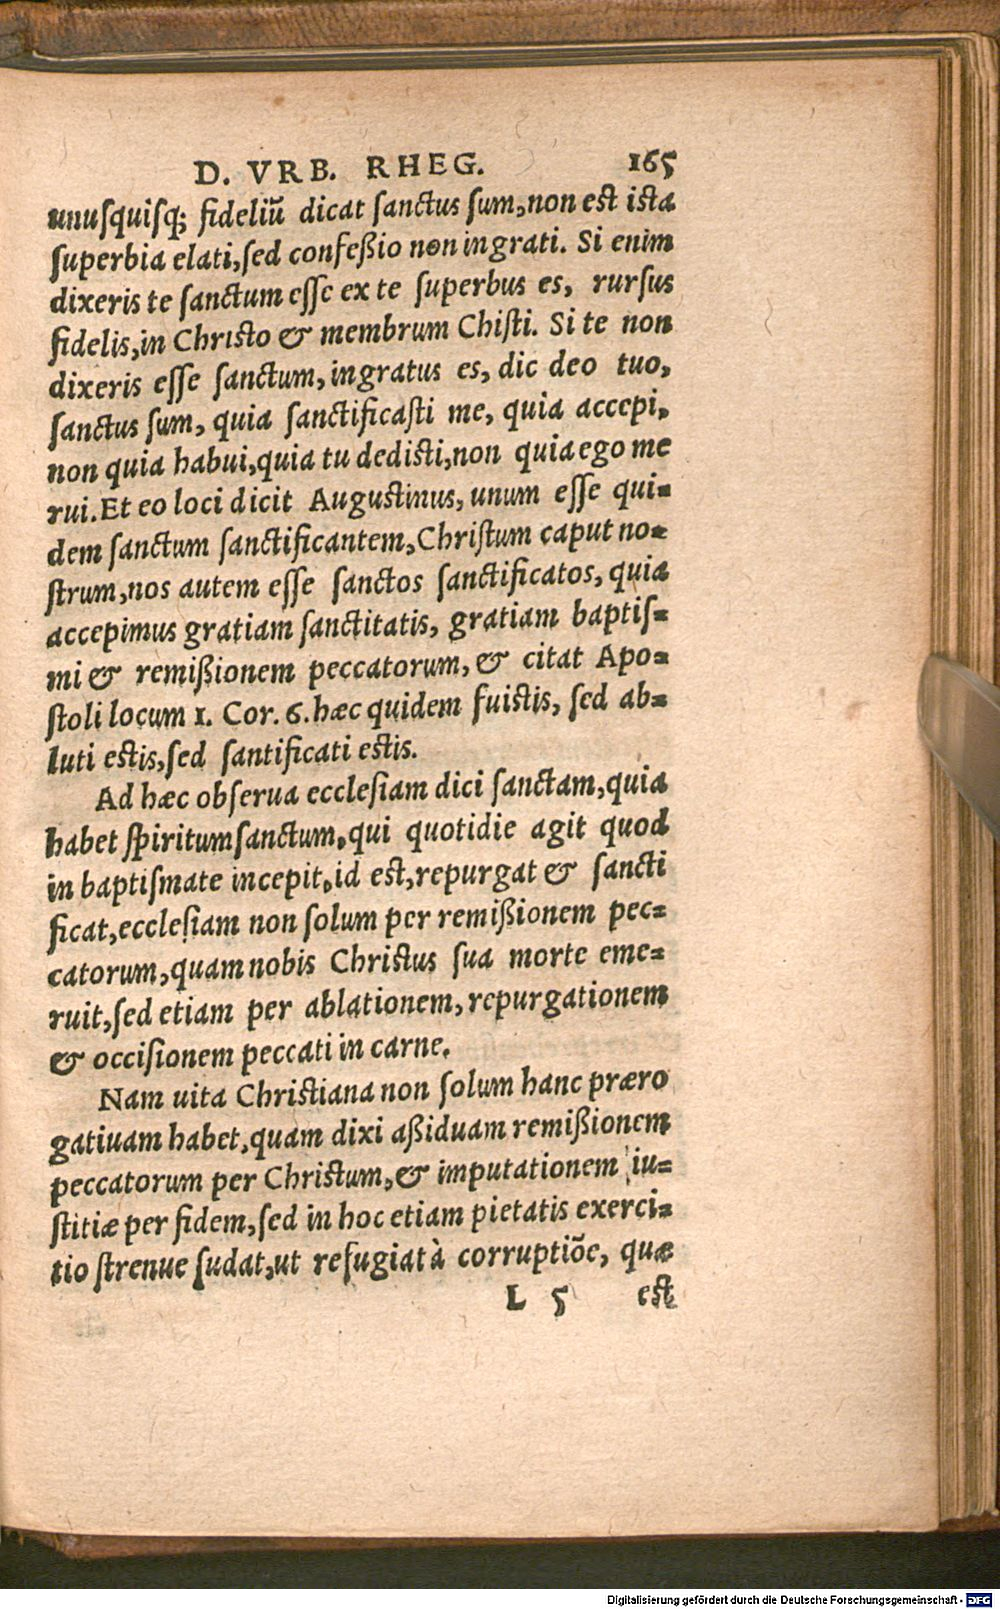 D. VRB. RHEG. 165
unuſquiſq; fideliũ dicat ſanctus ſum, non est ista
ſuperbia elati, ſed confeßio non ingrati. Si enim
dixeris te ſanctum eſſe ex te ſuperbus es, rurſus
fidelis, in Christo & membrum Chiſti. Si te non
dixeris eſſe ſanctum, ingratus es, dic deo tuo,
ſanctus ſum, quia ſanctificaſti me, quia accepi,
non quia habui, quia tu dedisti, non quia ego me
rui. Et eo loci dicit Augustinus, unum eſſe qui=
dem ſanctum ſanctificantem, Chriſtum caput no=
ſtrum, nos autem eſſe ſanctos ſanctificatos, quia
accepimus gratiam ſanctitatis, gratiam baptiſ=
mi & remißionem peccatorum, & citat Apo=
ſtoli locum 1. Cor. 6. hæc quidem fuistis, ſed ab=
luti estis, ſed ſantificati estis.
Ad hæc obſerua eccleſiam dici ſanctam, quia
habet ſpiritumſanctum, qui quotidie agit quod
in baptiſmate incepit, id est, repurgat & ſancti
ficat, eccleſiam non ſolum per remißionem pec=
catorum, quam nobis Christus ſua morte eme=
ruit, ſed etiam per ablationem, repurgationem
& occiſionem peccati in carne.
Nam uita Christiana non ſolum hanc præro
gatiuam habet, quam dixi aßiduam remißionem
peccatorum per Christum, & imputationem iu=
ſtitiæ per fidem, ſed in hoc etiam pietatis exerci=
tio ſtrenue ſudat, ut refugiat à corruptiõe, quæ
L 5 est
Digitalisierung gefördert durch die Deutsche Forschungsgemeinschaft - DFG